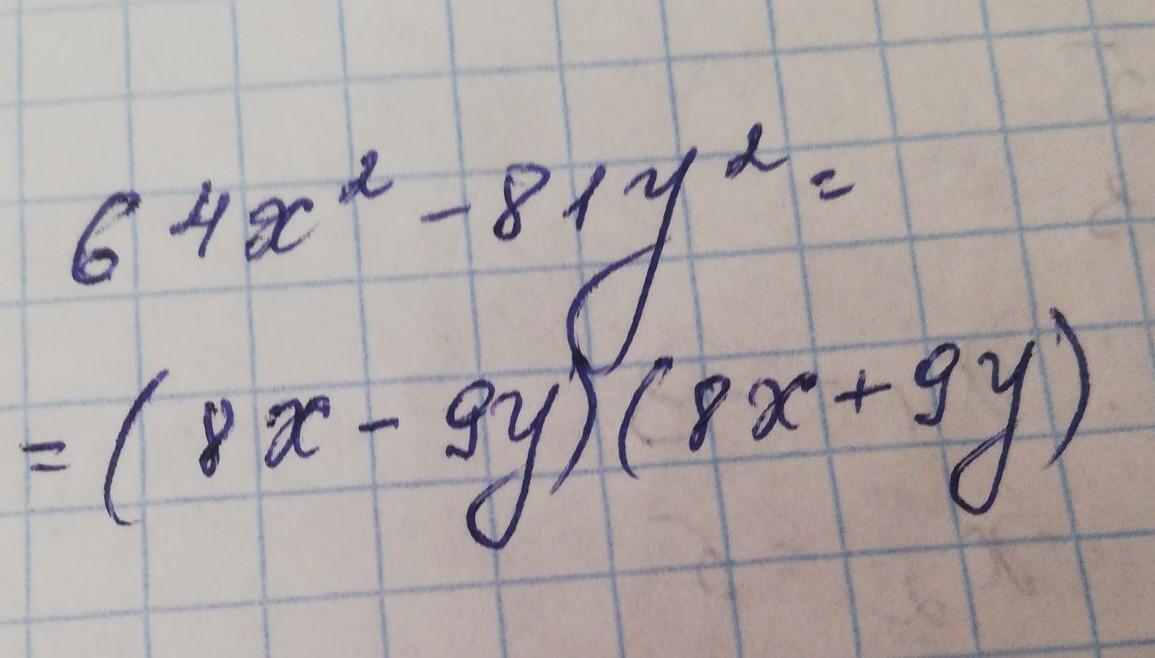 64x² - 81y² =
= (8x - 9y)(8x + 9y)